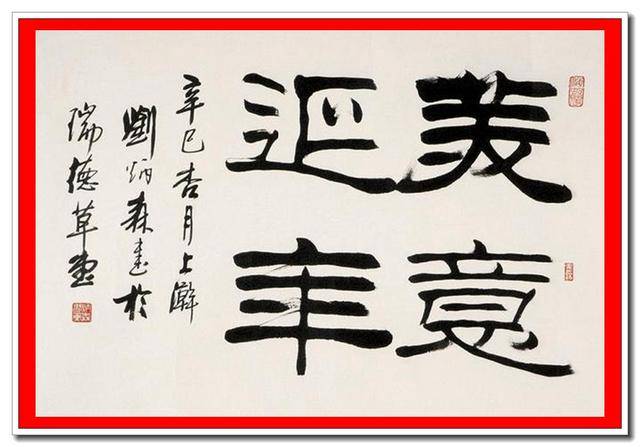 美意
延年
辛巳杏月上澣
劉炳森書於
瑞德草堂